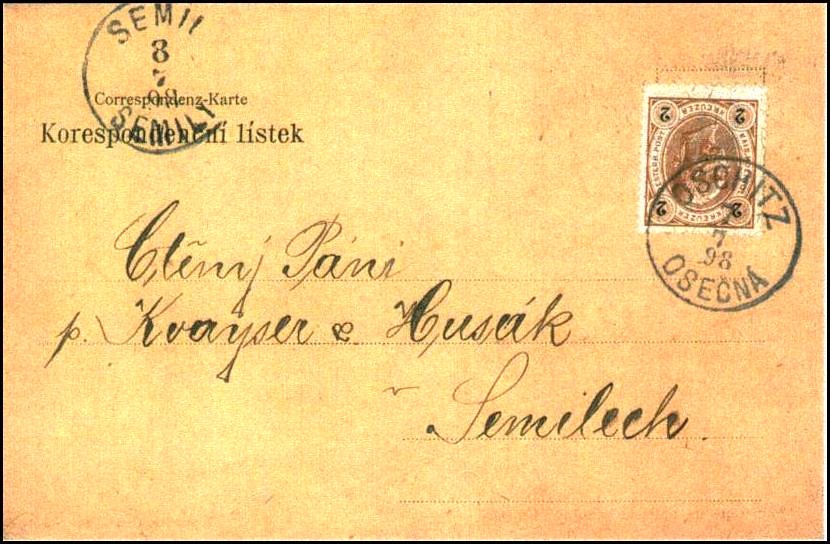 SEMIL
8
7
98
SEMILY
Correspondenz-Karte
Korespondenční lístek
2 KREUZER 2
2 KREUZER 2
OSCHITZ
7
98
OSEČNÁ
Ctěný Páni
p. Kvayser & Husák
v Semilech.